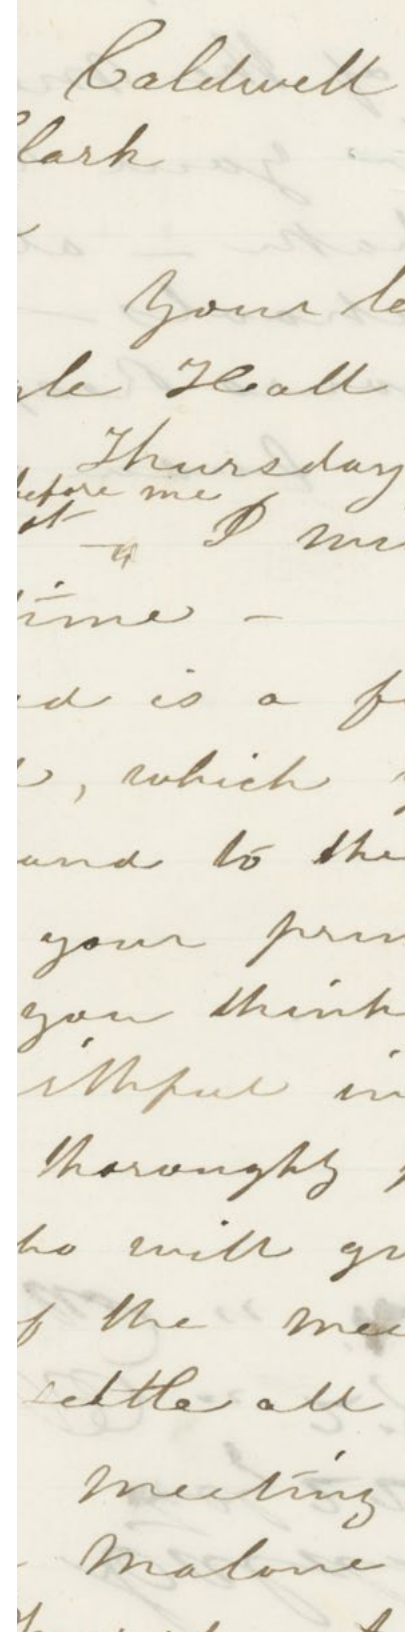 Caldwell
lark
Your le
gle Hall
Thursday
before me
at - I
time -
ed is a f
, which
and to the
your prin
you think
ithful in
thoroughly
ho will gr
f the mee
settle all
meeting
- Malone